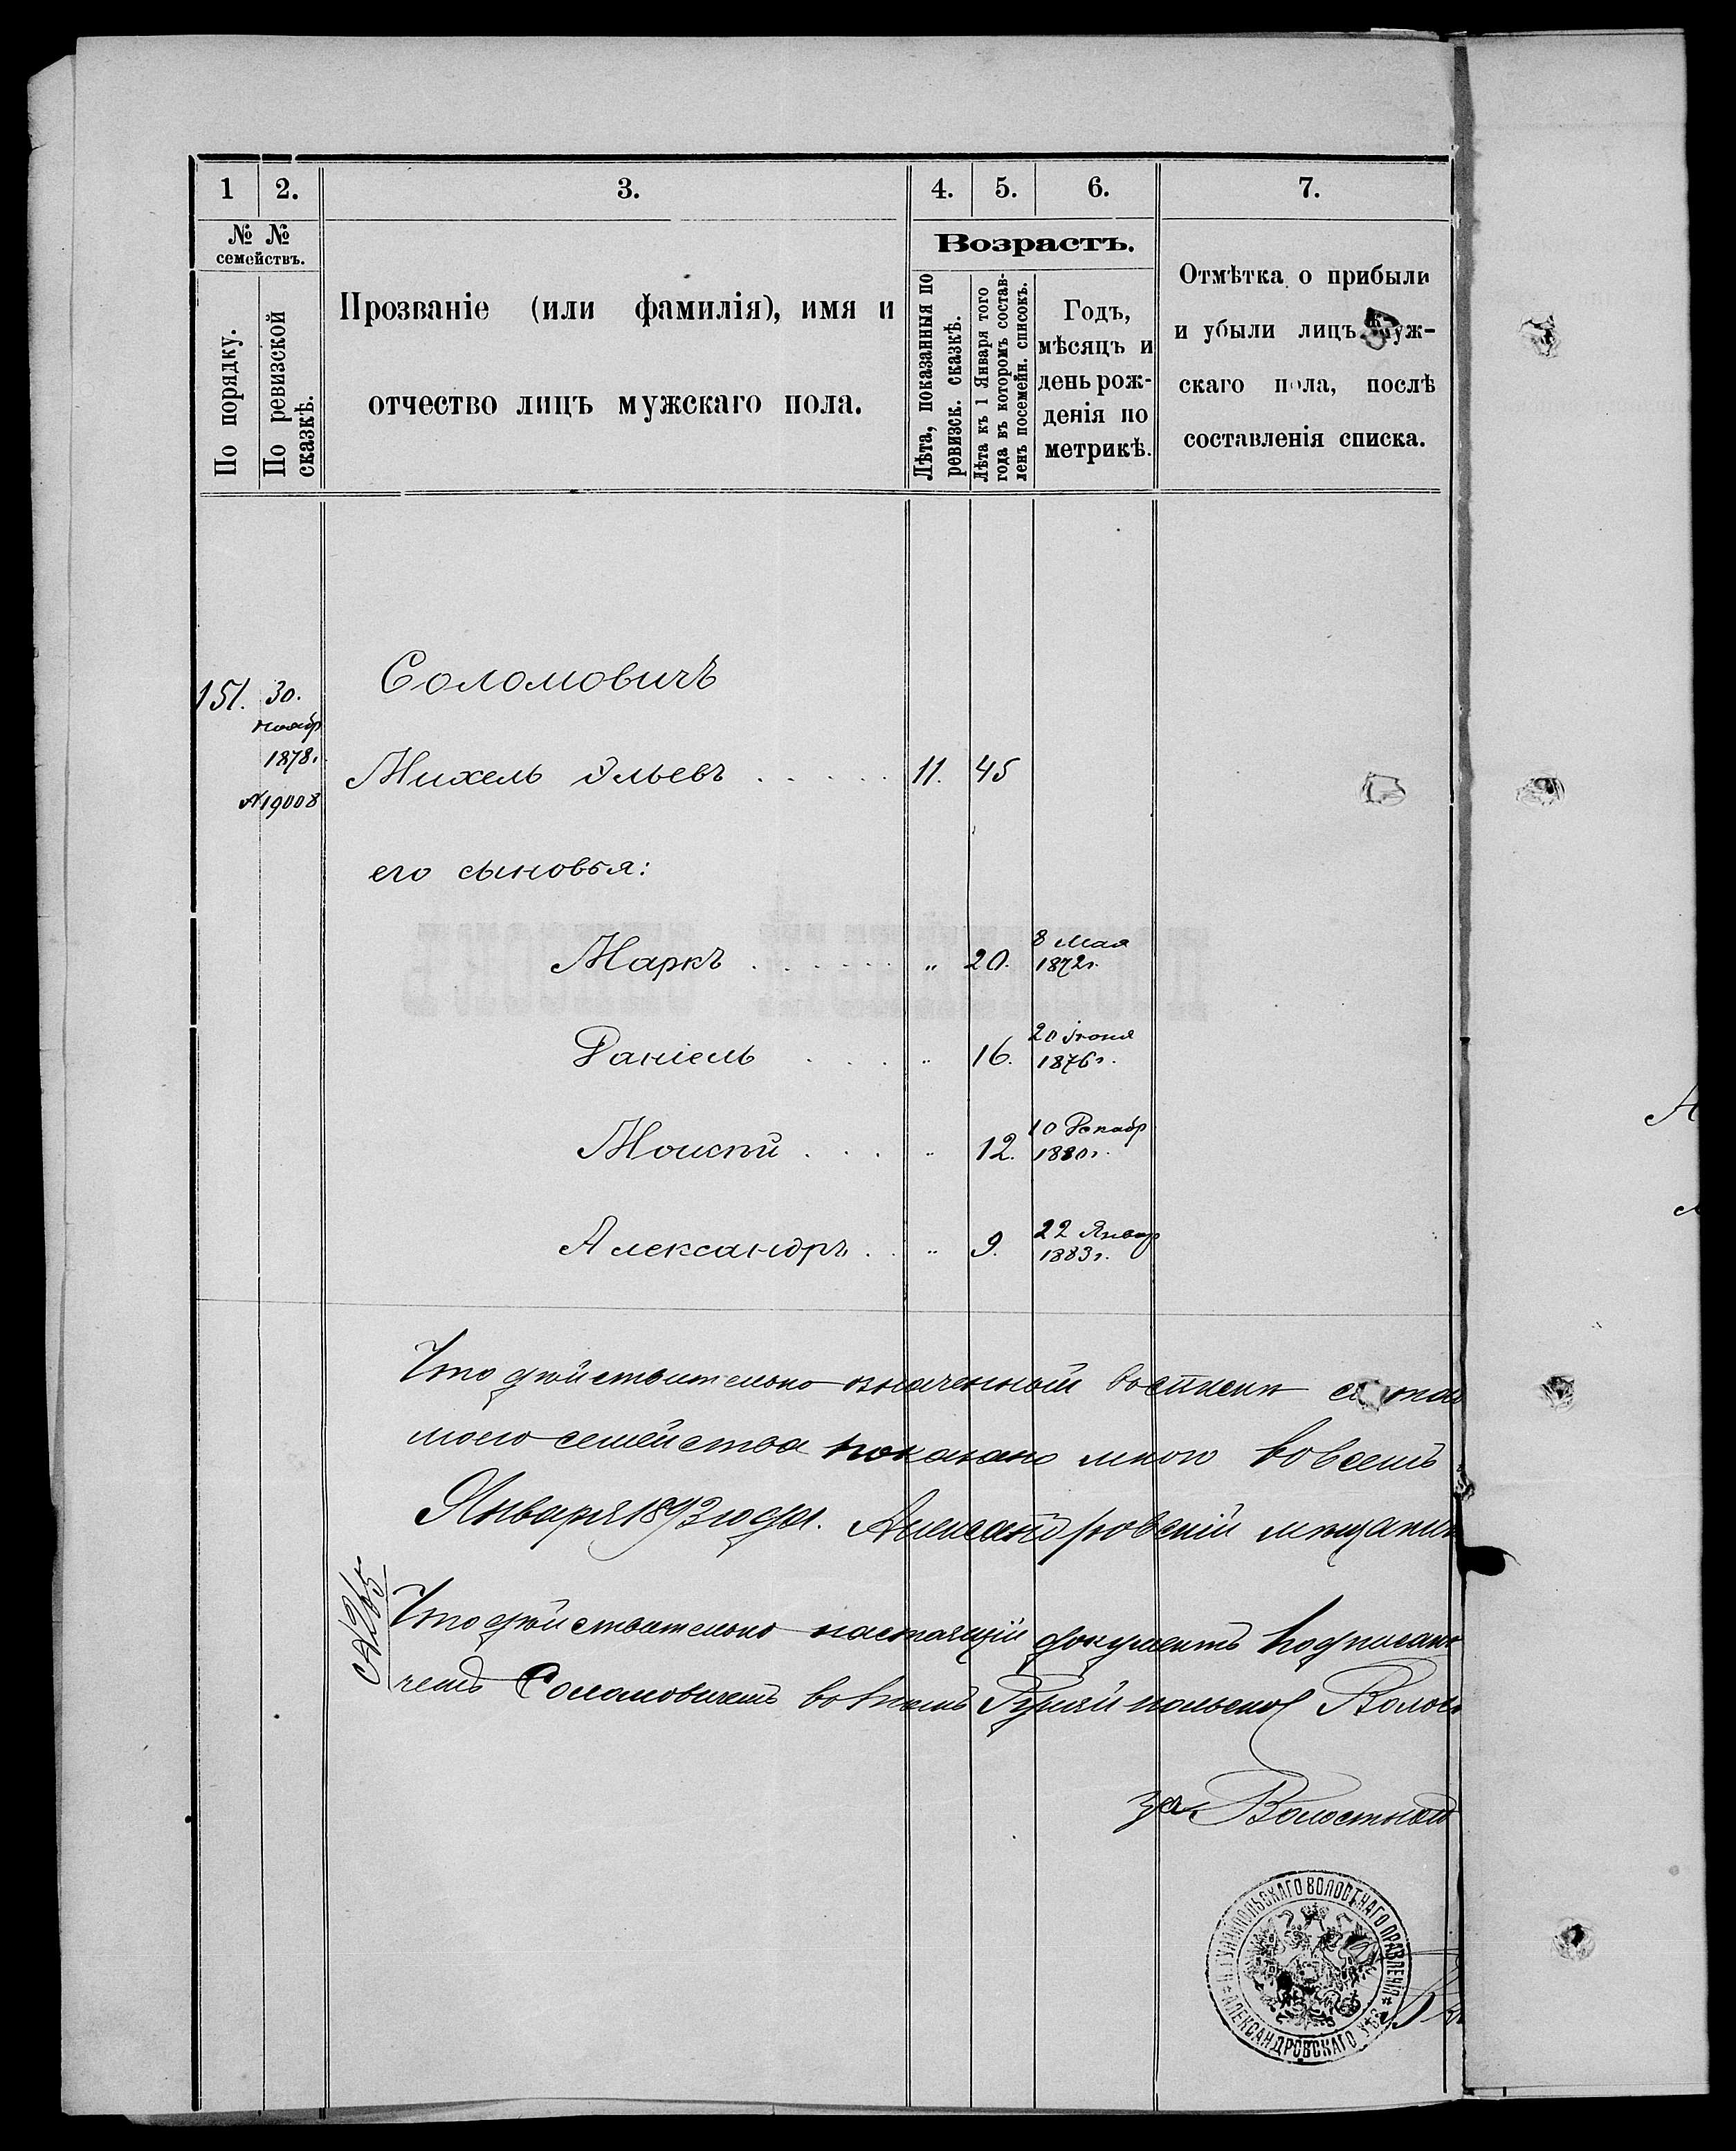 1 2. 3. 4. 5. 6. 7.
№ №
семействъ.
По порядку.
По ревизской
сказкѣ.
Прозваніе (или фамилія), имя и
отчество лицъ мужскаго пола.
Возрастъ.
Лѣта, показанныя по
ревизск. сказкѣ.
Лѣта къ 1 Января того
года въ которомъ состав-
ленъ посемейн. списокъ.
Годъ,
мѣсяцъ и
день рож-
денія по
метрикѣ.
Отмѣтка о прибыли
и убыли лицъ муж-
скаго пола, послѣ
составленія списка.
151. 30. Соломовичъ
ноябр
1878г.
№19008
Михель Эльевъ 11. 45
его сыновья:
Маркъ „ 20. 8 Мая
1872г.
Даніель „ 16. 20 іюня
1876г.
Моисѣй „ 12. 10 Декабр
1880г.
Александръ „ 9. 22 Январ
1883г.
Что дѣйствительно означенный
моего семейства показано мною во всемъ
Января 1893 года. Александровскій мѣщанин
№265
Что дѣйствительно настоящій документъ подписан
чемъ Соломовичемъ Гуляйпольском Волос
за Волостного
Гуляйпольскаго волостнаго правленія
Александровскаго уѣз.